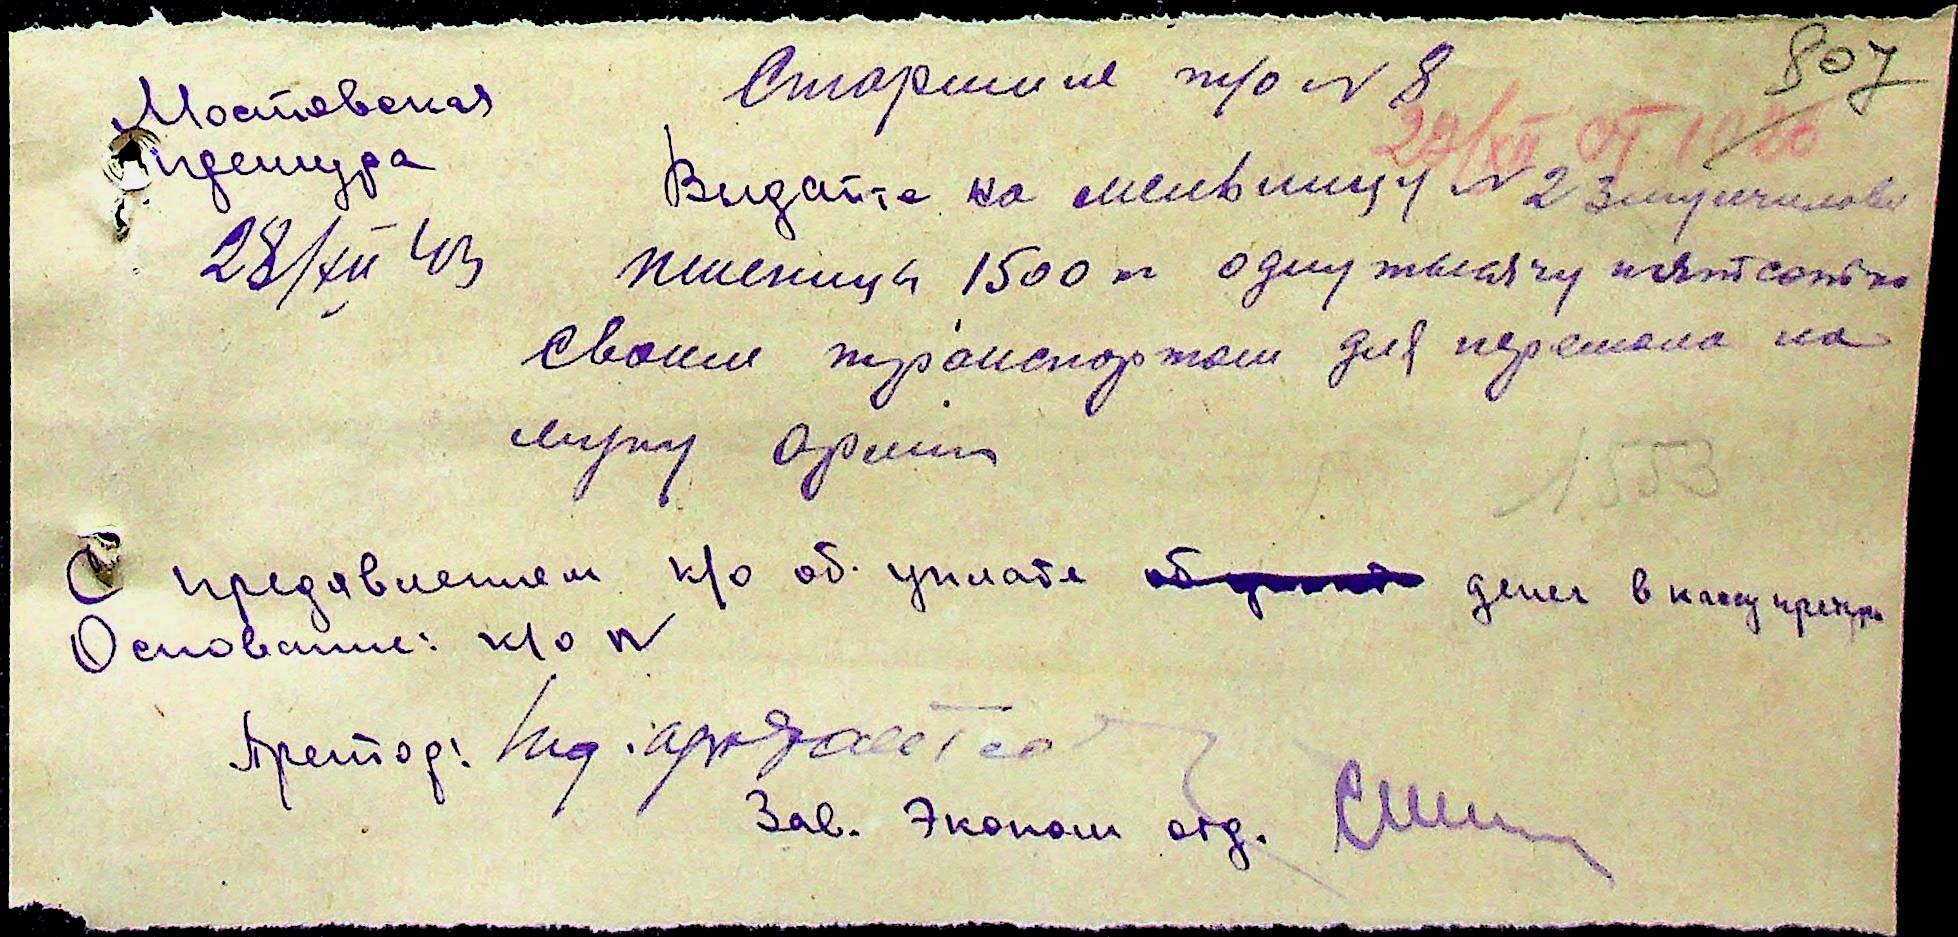 807
Мостовская
претура
28/XII 43
Старшине т/о N 8
Выдайте на мельницу N 2
пшеницы 1500 кг одну тысячу пятсот кг
своим транспортом для перемола на
муку армии
1553
С предявлением к/о об. уплате денег в кассу претуры
Основание: к/о N
Претор: Ing.
Зав. Эконом отд.